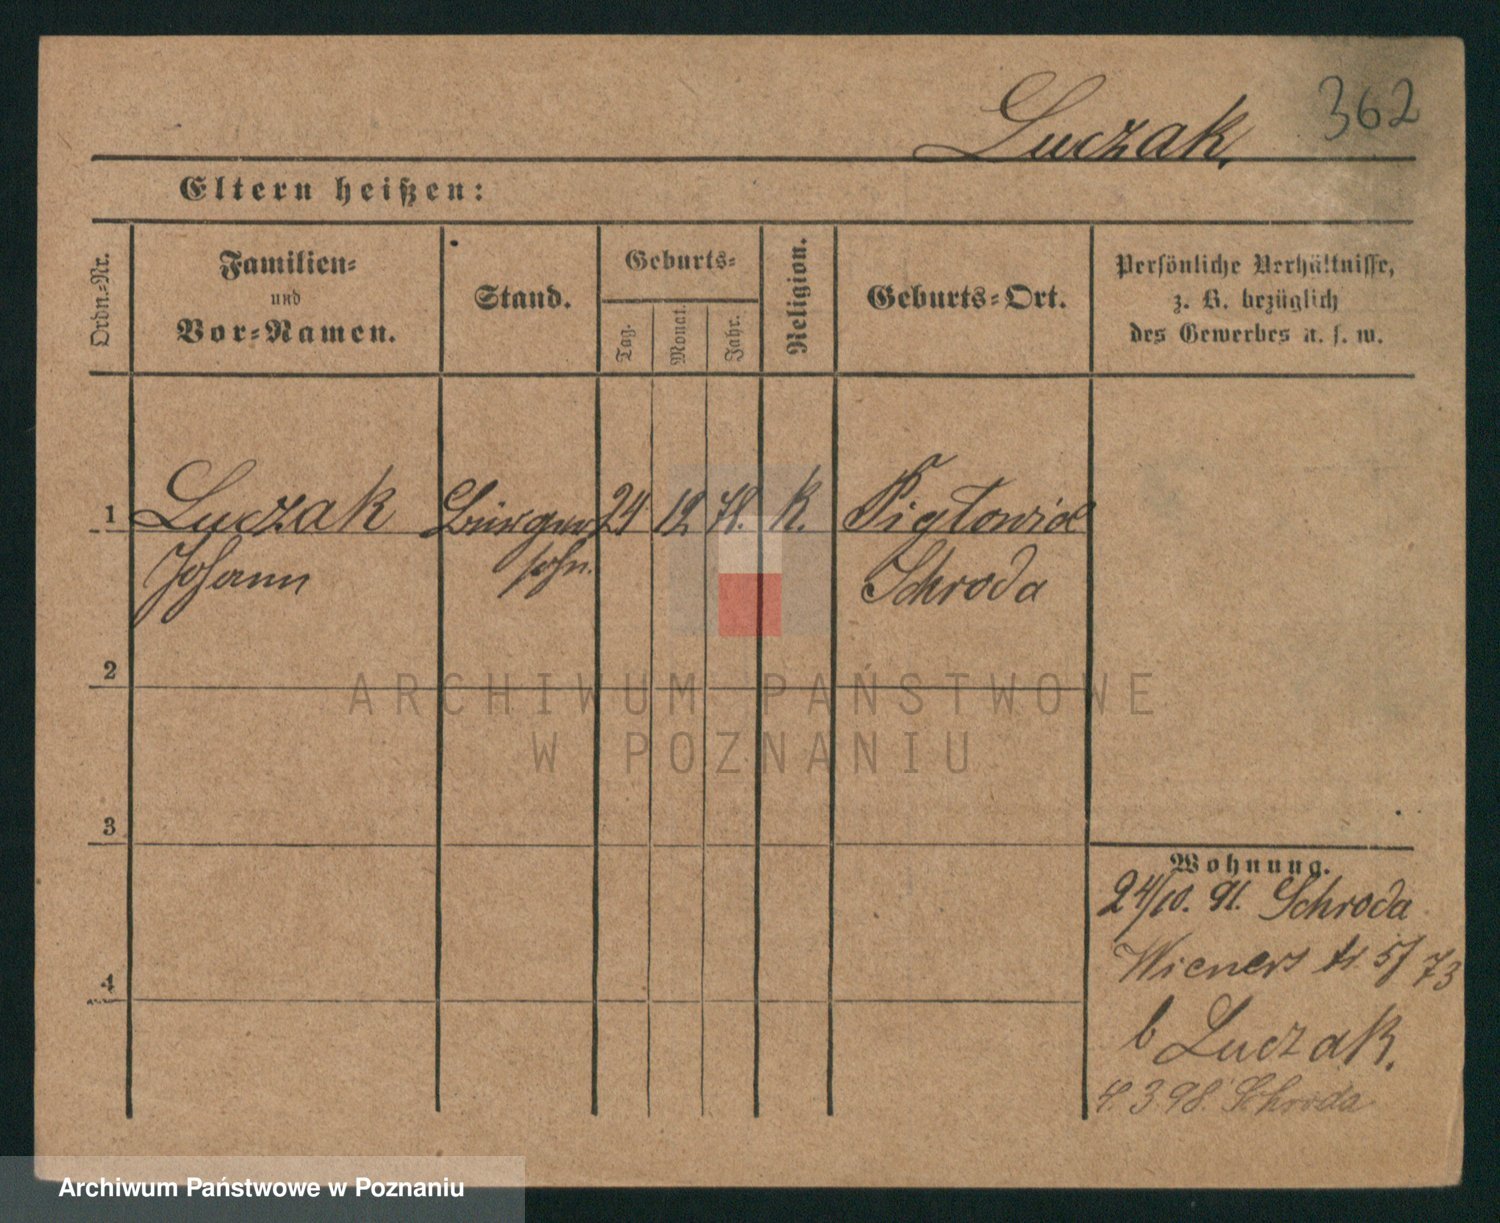 Luczak.
362
Eltern heißen:
Ordn.-Nr.
Familien-
und
Vor-Namen.
Stand.
Geburts-
Tag.
Monat.
Jahr.
Religion.
Geburts-Ort.
Persönliche Verhältnisse,
z. B. bezüglich
des Gewerbes u. s. w.
1 Luczak Bürger 24 12 78. K. Pigłowice
Johann sohn. Schroda
2
3
4
Wohnung.
24/10. 91. Schroda
Wieners tr 5/ 73
b Luczak.
4.3.98. Schroda
ARCHIWUM PAŃSTWOWE
W POZNANIU
Archiwum Państwowe w Poznaniu